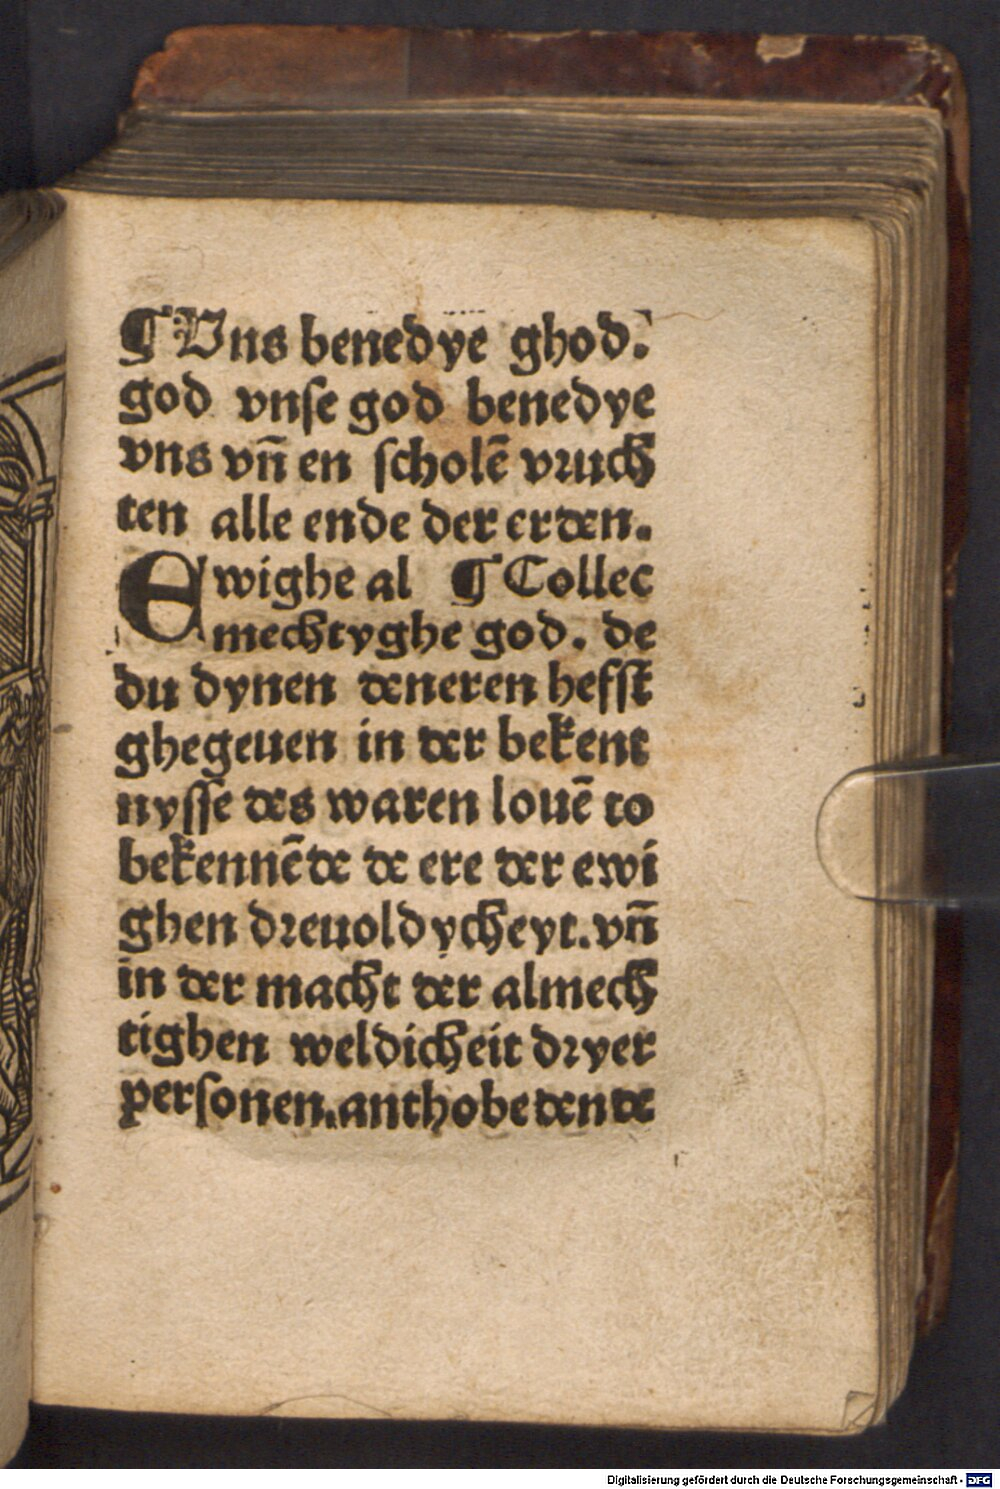 ¶ Uns benedye ghod.
god vnſe god benedye
vns vñ en ſcholē vruch
ten alle ende der erden.
Ewighe al ¶ Collec
mechtyghe god. de
du dynen deneren hefſt
ghegeuen in der bekent
nyſſe des waren louē to
bekennēde de ere der ewi
ghen dreuoldycheyt. vñ
in der macht der almech
tighen weldicheit dryer
perſonen. anthobedende
Digitalisierung gefördert durch die Deutsche Forschungsgemeinschaft - DFG